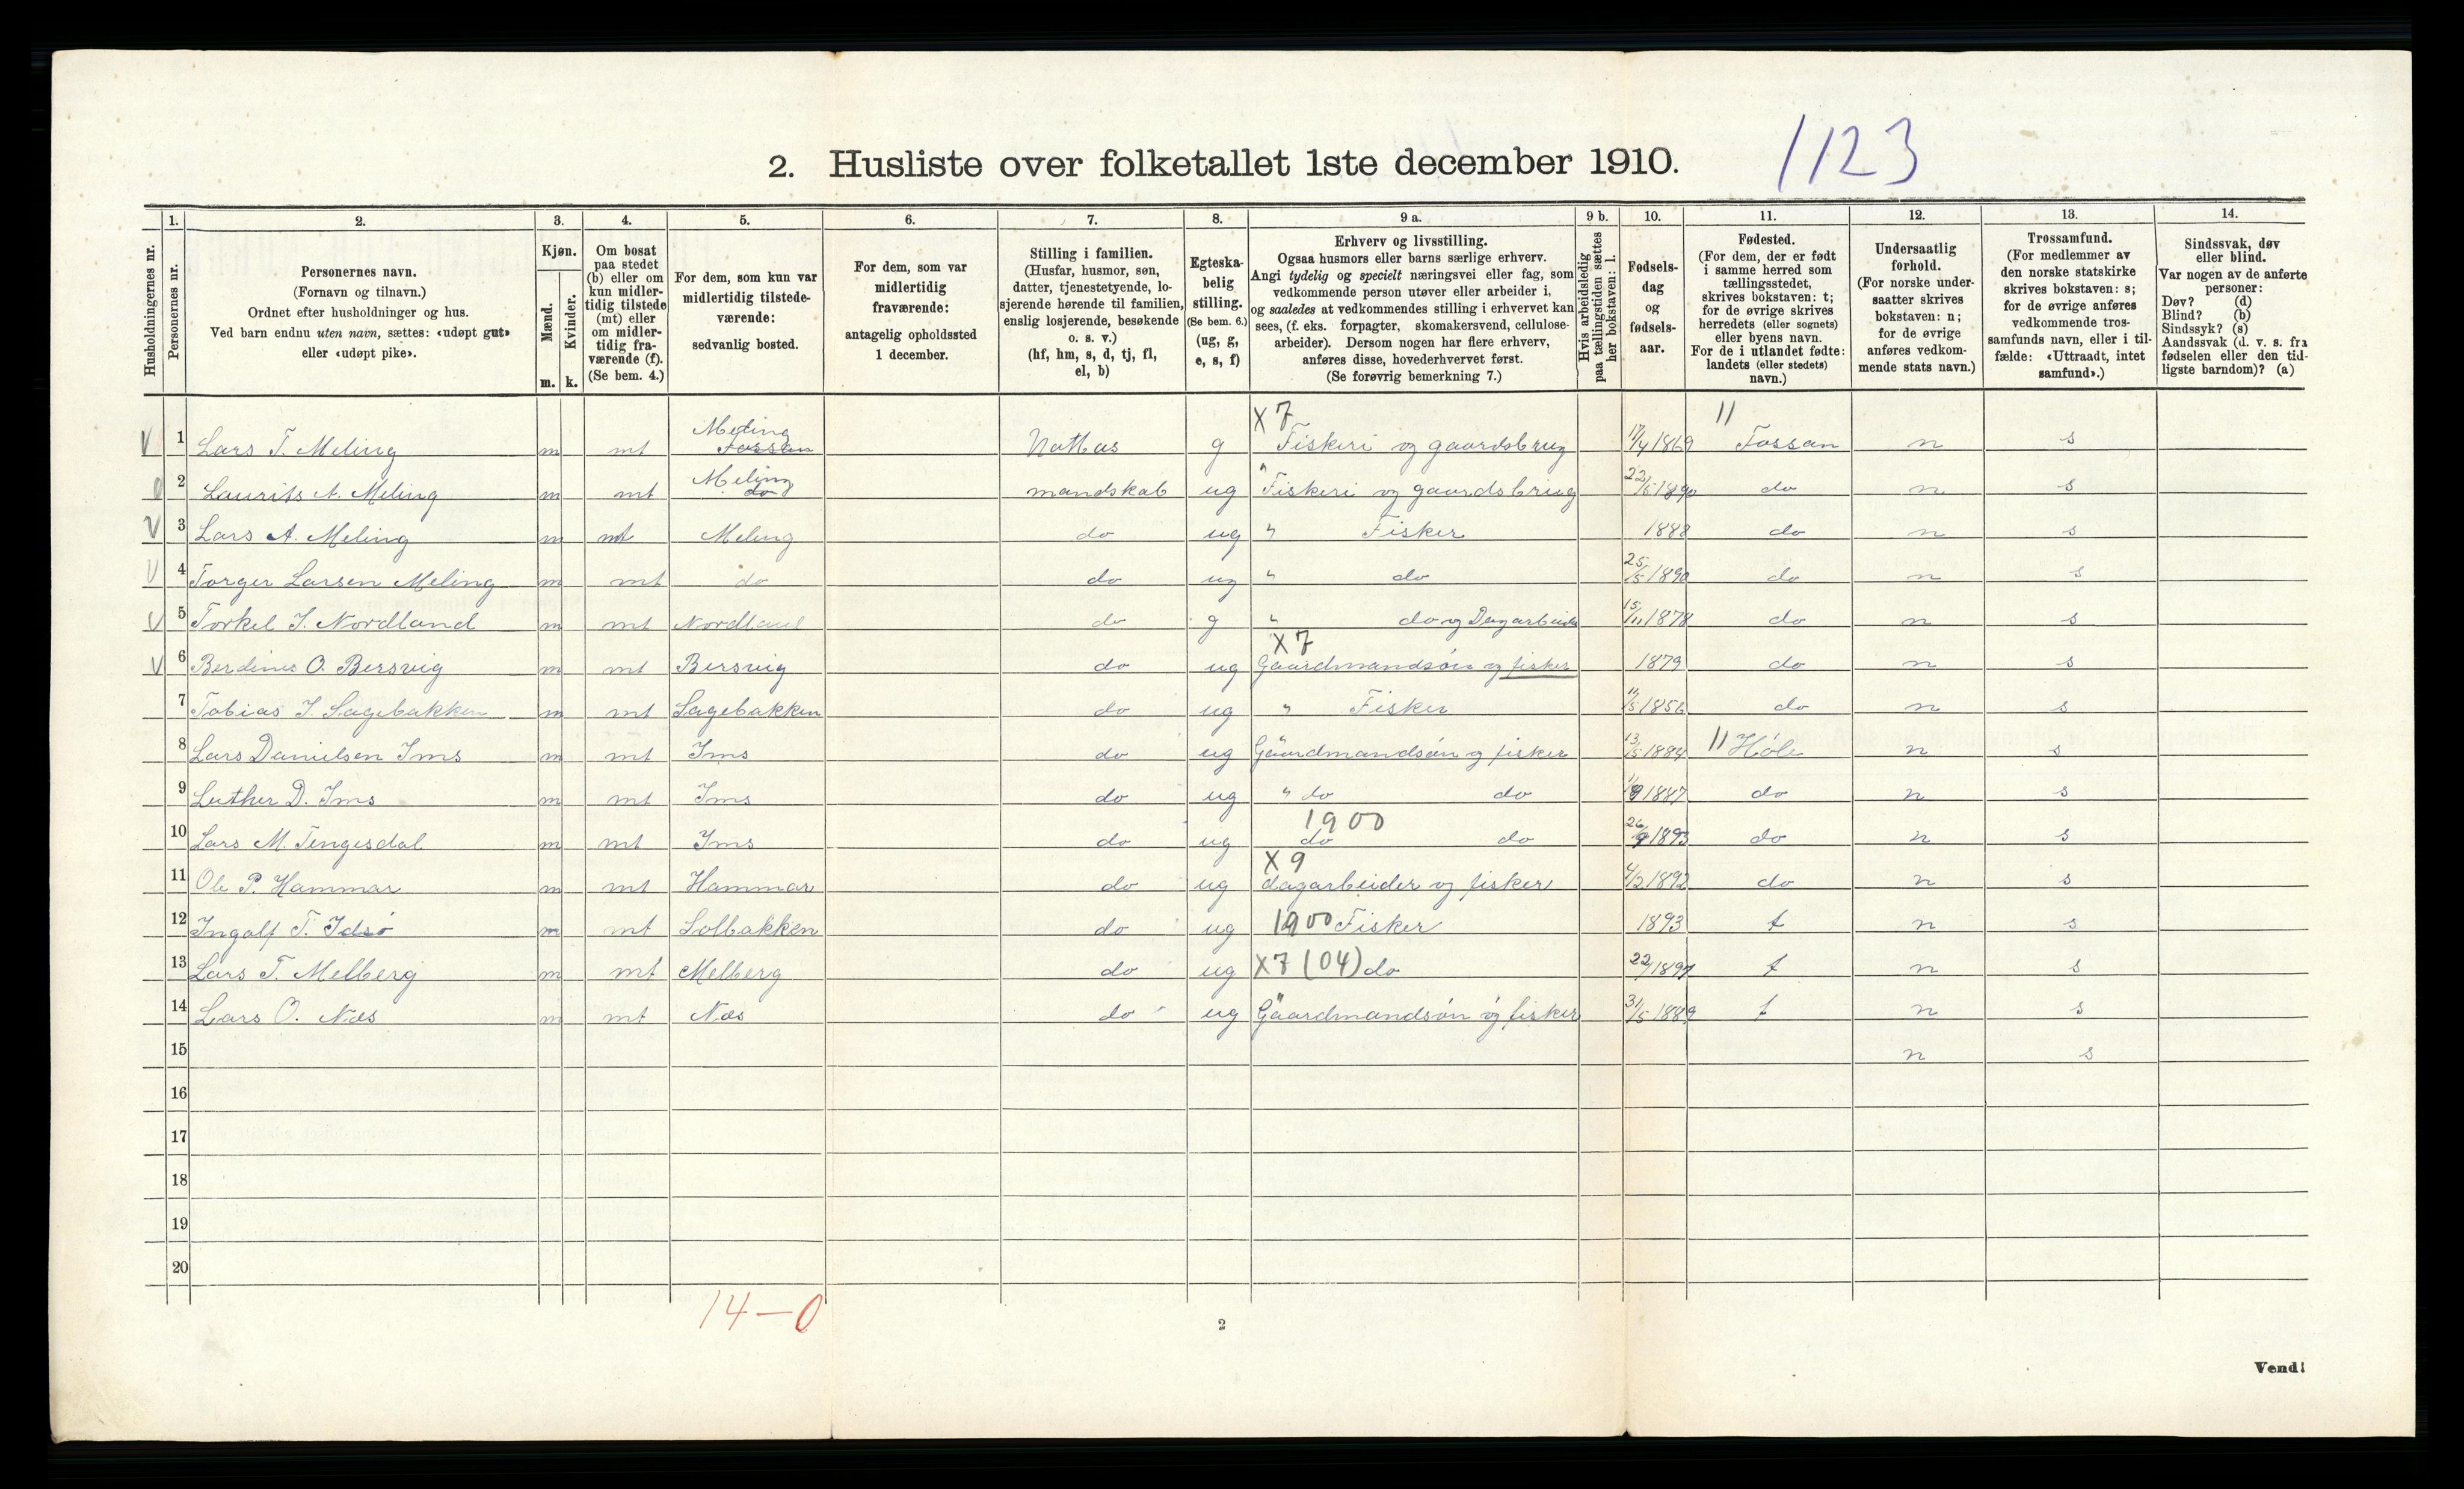 1123
2. Husliste over folketallet 1ste december 1910.
Husholdningernes nr.
1. Personernes nr.
2. Personernes navn.
(Fornavn og tilnavn.)
Ordnet efter husholdninger og hus.
Ved barn endnu uten navn, sættes: «udøpt gut»
eller «udøpt pike».
3. Kjøn.
Mænd. m.
Kvinder. k.
4. Om bosat
paa stedet
(b) eller om
kun midler-
tidig tilstede
(mt) eller
om midler-
tidig fra-
værende (f).
(Se bem. 4.)
5. For dem, som kun var
midlertidig tilstede-
værende:
sedvanlig bosted.
6. For dem, som var
midlertidig
fraværende:
antagelig opholdssted
1 december.
7. Stilling i familien.
(Husfar, husmor, søn,
datter, tjenestetyende, lo-
sjerende hørende til familien,
enslig losjerende, besøkende
o. s. v.)
(hf, hm, s, d, tj, fl,
el, b)
8. Egteska-
belig
stilling.
(Se bem. 6.)
(ug, g,
e, s, f)
9 a. Erhverv og livsstilling.
Ogsaa husmors eller barns særlige erhverv.
Angi tydelig og specielt næringsvei eller fag, som
vedkommende person utøver eller arbeider i,
og saaledes at vedkommendes stilling i erhvervet kan
sees, (f. eks. forpagter, skomakersvend, cellulose-
arbeider). Dersom nogen har flere erhverv,
anføres disse, hovederhvervet først.
(Se forøvrig bemerkning 7.)
9 b. Hvis arbeidsledig
paa tællingstiden sættes
her bokstaven: l.
10. Fødsels-
dag
og
fødsels-
aar.
11. Fødested.
(For dem, der er født
i samme herred som
tællingsstedet,
skrives bokstaven: t;
for de øvrige skrives
herredets (eller sognets)
eller byens navn.
For de i utlandet fødte:
landets (eller stedets)
navn.)
12. Undersaatlig
forhold.
(For norske under-
saatter skrives
bokstaven: n;
for de øvrige
anføres vedkom-
mende stats navn.)
13. Trossamfund.
(For medlemmer av
den norske statskirke
skrives bokstaven: s;
for de øvrige anføres
vedkommende tros-
samfunds navn, eller i til-
fælde: «Uttraadt, intet
samfund».)
14. Sindssvak, døv
eller blind.
Var nogen av de anførte
personer:
Døv? (d)
Blind? (b)
Sindssyk? (s)
Aandssvak (d. v. s. fra
fødselen eller den tid-
ligste barndom)? (a)
X7 11
1 Lars T. Meling m mt Meling Fossan g Fiskeri og gaardsbrug 17/4 1869 Fossan n s
2 Laurits A. Meling m mt Meling do mandskab ug " Fiskeri og gaardsbrug 22/5 1890 do n s
3 Lars A. Meling m mt Meling do ug " Fisker 1888 do n s
4 Torger Larsen Meling m mt do do ug " do 25/5 1890 do n s
5 Torkel I. Nordland m mt Nordland do g " do og Dagarbeider 15/11 1878 do n s
X7
6 Berdines O. Bersvig m mt Bersvig do ug Gaardmandsøn og fisker 1879 do n s
7 Tobias I. Sagebakken m mt Sagebakken do ug " Fisker 11/5 1856 do n s
8 Lars Danielsen Ims m mt Ims do ug Gaardmandsøn og fisker 13/5 1884 11 Höle n s
9 Luther D. Ims m mt Ims do ug " do do 1887 do n s
1900
10 Lars M. Tengesdal m mt Ims do ug do do 26/9 1893 do n s
X9
11 Ole P. Hammar m mt Hammar do ug dagarbeider og fisker 4/2 1892 do n s
12 Ingolf T. Idsø m mt Solbakken do ug 1900 Fisker 1893 t n s
13 Lars T. Melberg m mt Melberg do ug X7 (04) do t n s
14 Lars O. Næs m mt Næs do ug Gaardmandsøn og fisker 31/5 1889 t n s
15 n s
16
17
18
19
20
14 – 0
2
Vend!